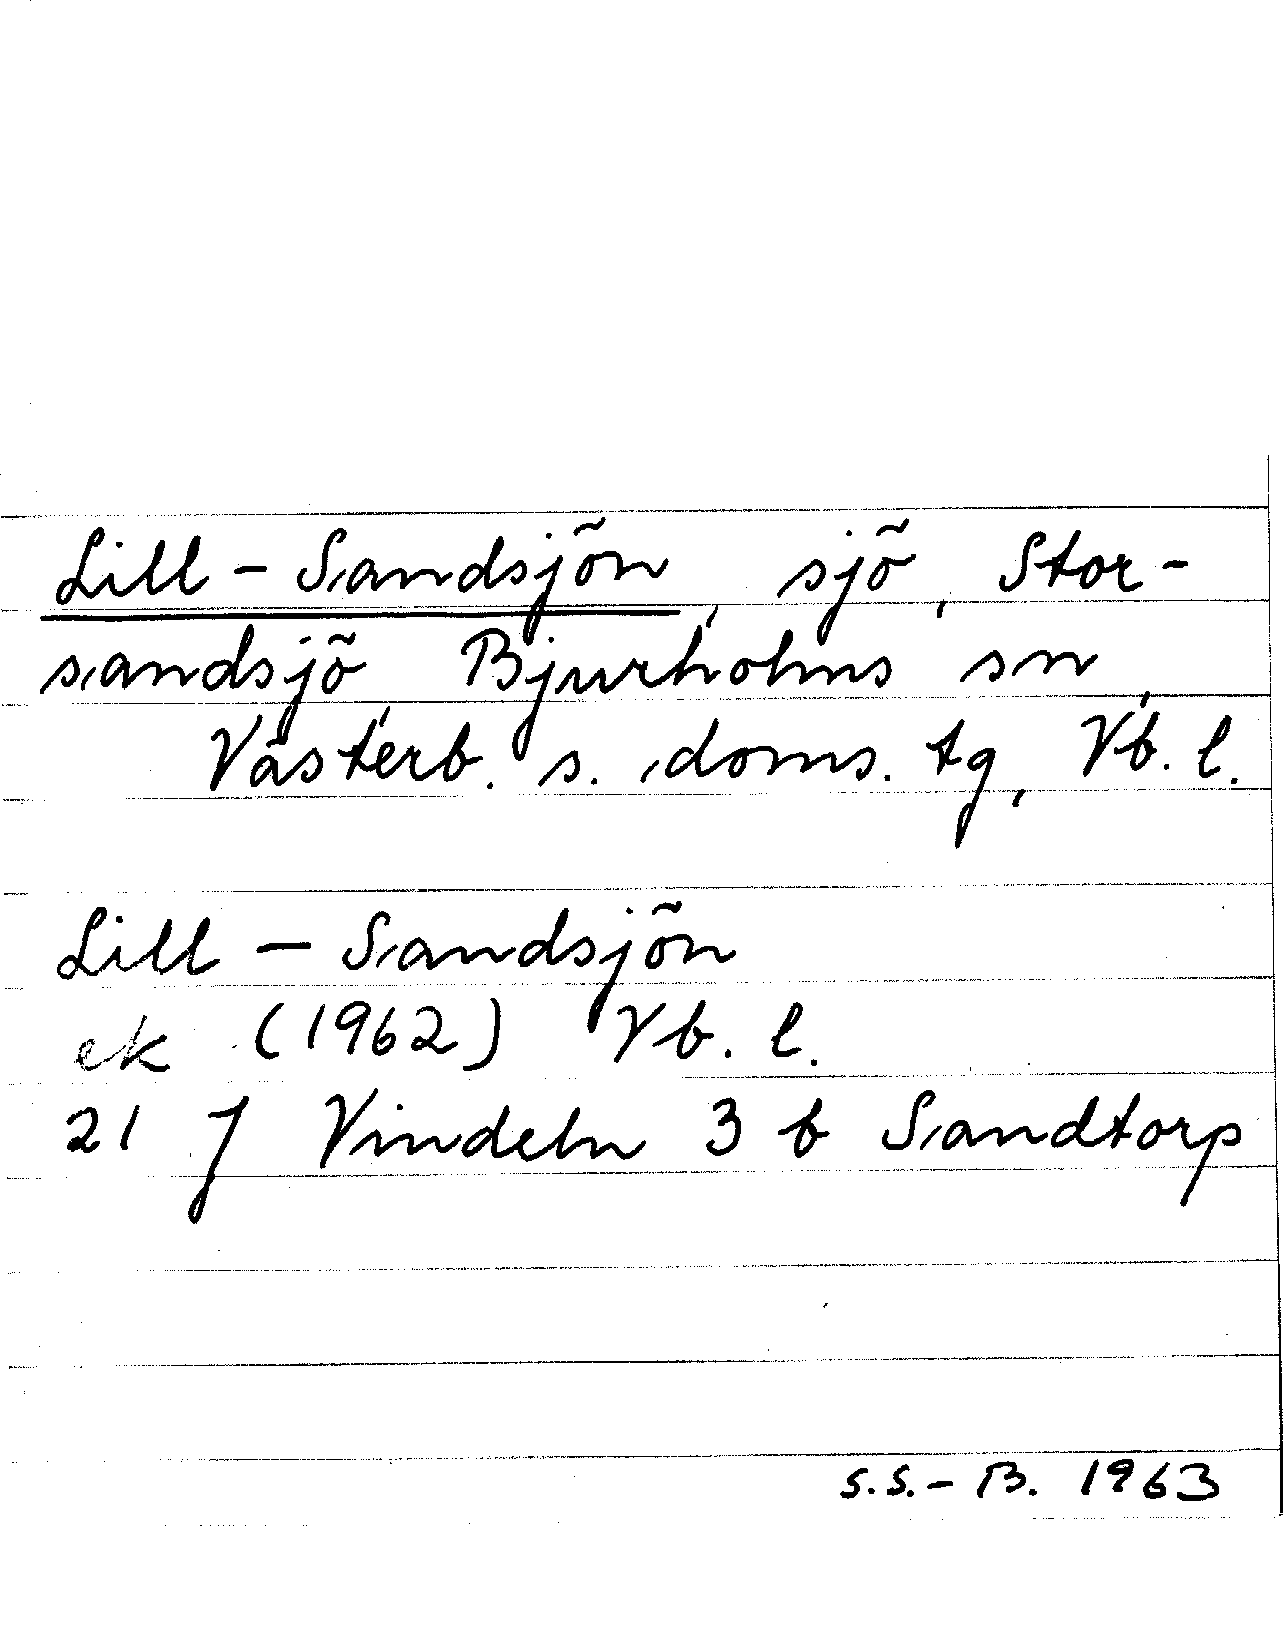 Lill-Sandsjön, sjö, Stor-
sandsjö, Bjurholms sn,
Västerb. s. doms. tg, Vb. l.
Lill-Sandsjön
ek (1962) Vb. l.
21 J Vindeln 3 b Sandtorp
S.S.-B. 1963